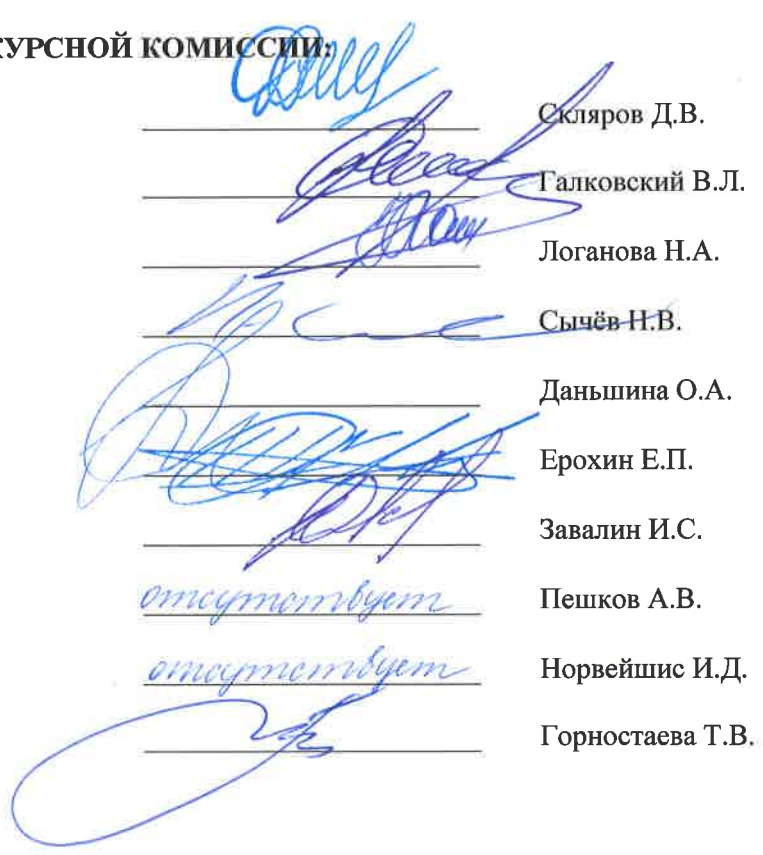 КУРСНОЙ КОМИССИИ:
Скляров Д.В.
Галковский В.Л.
Логанова Н.А.
Сычёв Н.В.
Даньшина О.А.
Ерохин Е.П.
Завалин И.С.
отсутствует Пешков А.В.
отсутствует Норвейшис И.Д.
Горностаева Т.В.